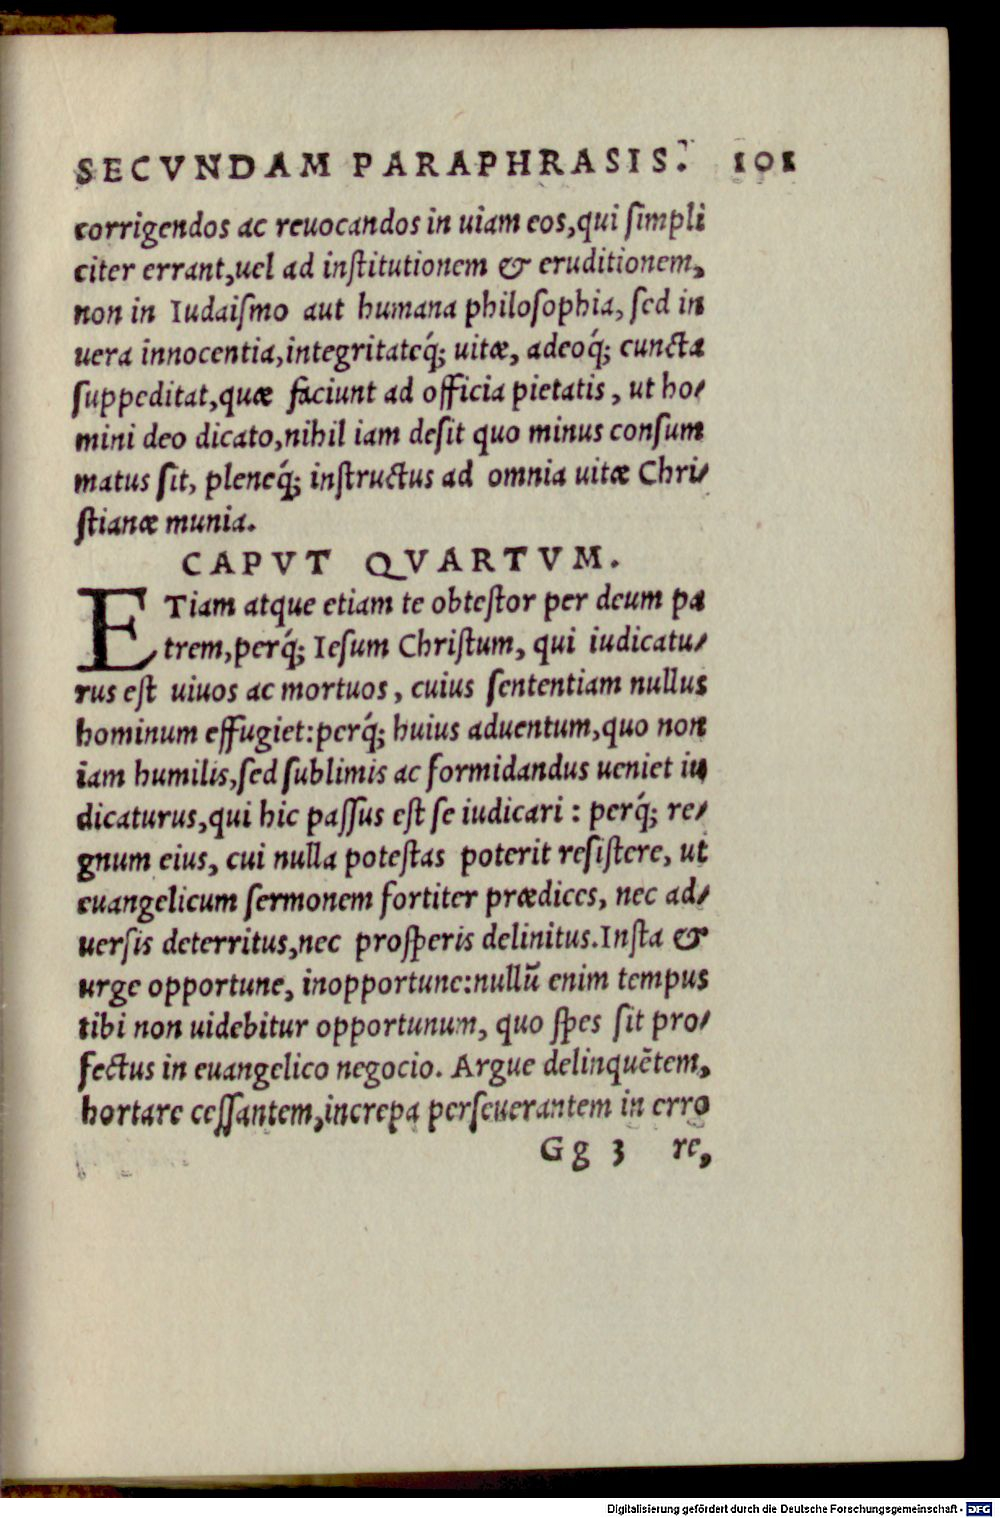 SECVNDAM PARAPHRASIS. 101
corrigendos ac reuocandos in uiam eos, qui ſimpli
citer errant, uel ad inſtitutionem & eruditionem,
non in Iudaiſmo aut humana philoſophia, ſed in
uera innocentia, integritateq́; uitæ, adeoq́; cuncta
ſuppeditat, quæ faciunt ad officia pietatis, ut ho⸗
mini deo dicato, nihil iam deſit quo minus conſum
matus ſit, pleneq́; inſtructus ad omnia uitæ Chri⸗
ſtianæ munia.
CAPVT QVARTVM.
ETiam atque etiam te obteſtor per deum pa
trem, perq́; Ieſum Chriſtum, qui iudicatu⸗
rus eſt uiuos ac mortuos, cuius ſententiam nullus
hominum effugiet: perq́; huius aduentum, quo non
iam humilis, ſed ſublimis ac formidandus ueniet iu
dicaturus, qui hic paſſus eſt ſe iudicari: perq́; re⸗
gnum eius, cui nulla poteſtas poterit reſiſtere, ut
euangelicum ſermonem fortiter prædices, nec ad⸗
uerſis deterritus, nec proſperis delinitus. Inſta &
urge opportune, inopportune: nullū enim tempus
tibi non uidebitur opportunum, quo ſpes ſit pro⸗
fectus in euangelico negocio. Argue delinquētem,
hortare ceſſantem, increpa perſeuerantem in erro
Gg 3 re,
Digitalisierung gefördert durch die Deutsche Forschungsgemeinschaft - DFG